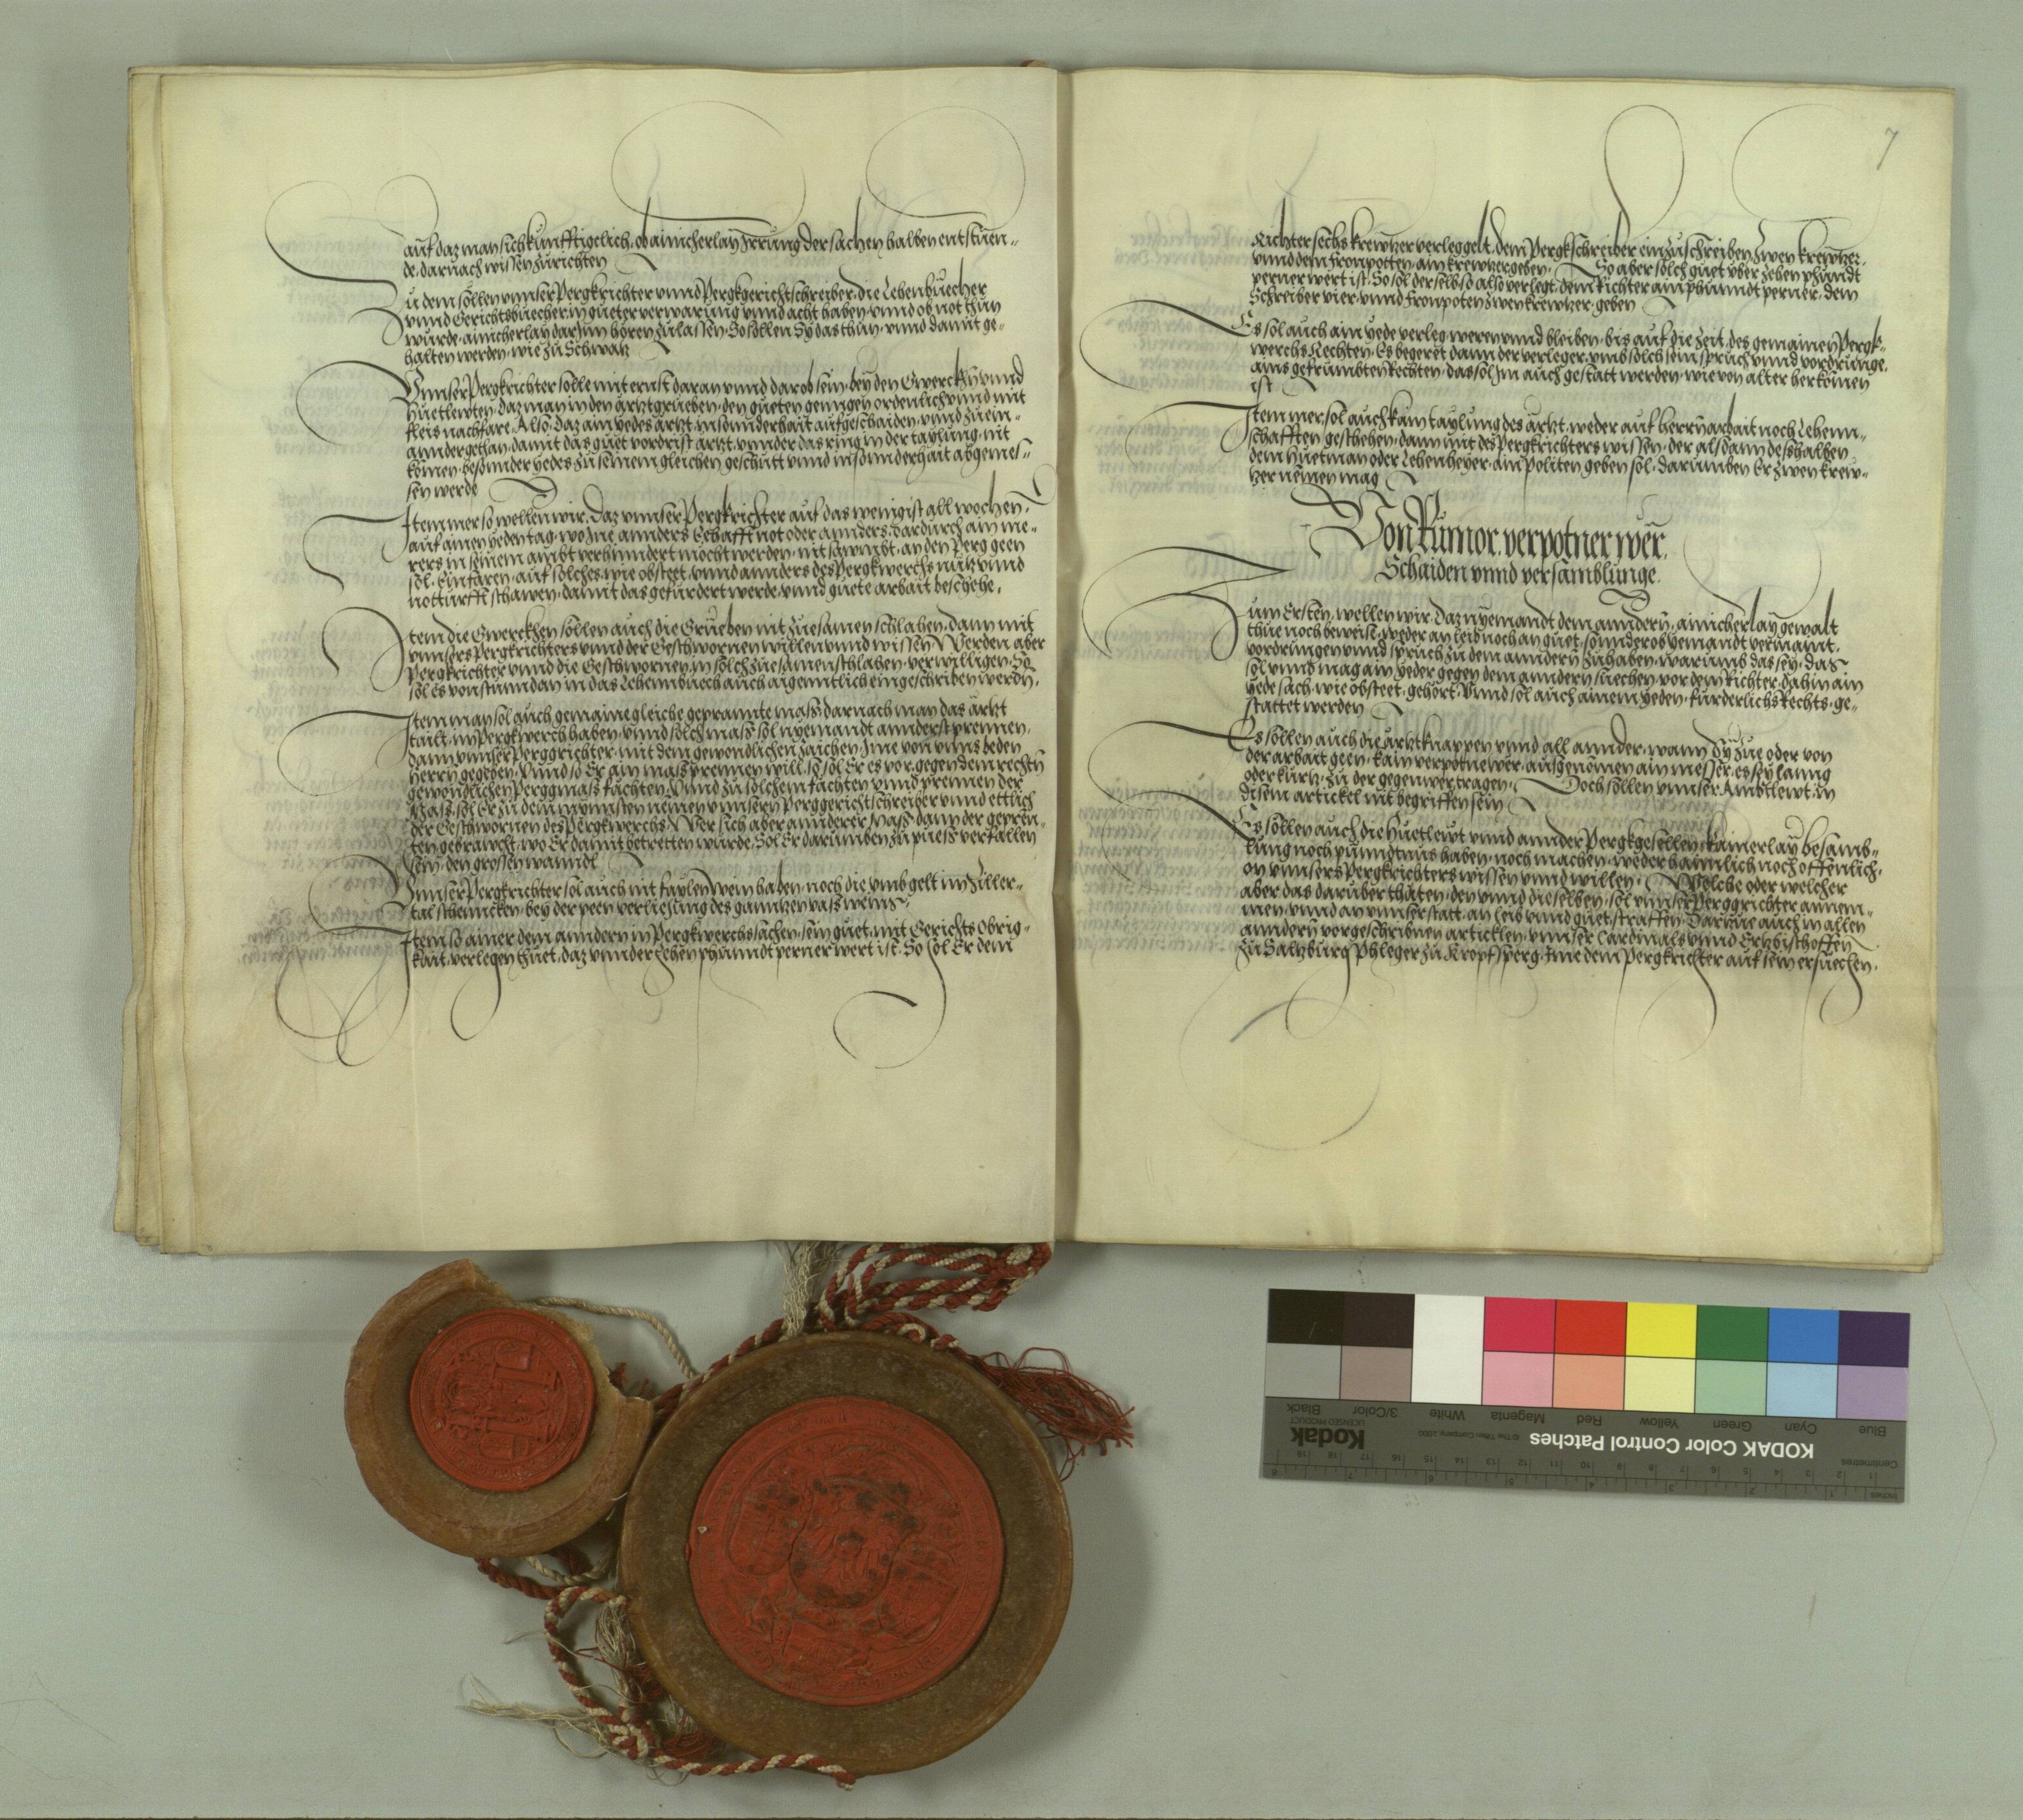 auf daz man sich kunfftigclich, ob ainicherlay Irrung der sachen halben entstuen-
de, darnach wissen zurichten
Zu dem sollen vnnser Pergkrichter vnnd Pergkgerichtschreiber, die Lehenbuecher
vnnd Gerichtsbuecher, in gueter verwarung vnnd acht haben, vnnd ob not thun
wurde, ainicherlay darInn hören zulassen, So sollen Sy das thun, vnnd damit ge-
halten werden, wie zu Schwatz
Vnnser Pergkrichter solle mit ernst daran vnnd darob sein, bey den Gwerckhn vnnd
Huetlewten, daz man in den ärtzt grueben, den gueten genngen ordenlich vnnd mit
fleis nachfare, Also, daz ain yedes ärtzt, in sonnderhait aufgeschaiden, vnnd zu ein-
annder gethan, damit das guet vordrist ärtzt, vnnder das ring in der taylung, nit
komen, besonnder yedes zu seinem gleichen geschutt vnnd in sonnderhait abgemes-
sen werde
Item mer so wellen wir, daz vnnser Pergkrichter auf das wenigist all wochen,
auf ainen yeden tag, wo Ine annders Eehafft not oder annders, dardurch ain me-
rers in seinem ambt verhinndert möcht werden, nit sawmbt, an den Perg geen
sol, Einfaren, auf solches, wie obsteet, vnnd annders des Pergkwerchs nutz vnnd
notturfft schawen, damit das gefürdert werde, vnnd guete arbait beschehe,
Item die Gwerckhen sollen auch die Grueben nit zuesamen schlahen, dann mit
vnnsers Pergkrichters vnnd der Geschwornen willen vnnd wissen, Werden aber
Pergkrichter vnnd die Geschwornen, in solch zuesamenschlahen, verwilligen, So
sol Es von stunndan in das Lehennbuech auch aigenntlich eingeschriben werdn,
Item man sol auch gemaine gleiche geprannte mass, darnach man das ärtzt
tailt, im Pergkwerch haben, vnnd solch mass sol nyemandt annderst prennen,
dann vnnser Perggrichter, mit dem gewondlichen zaichen, Ime von vnns beden
herrn gegeben, Vnnd so Er ain mass prennen will, so sol Er es vor, gegen dem rechtn
gewondlichen Perggmass fächten, Vnnd zu solchem fächten vnnd prennen der
Mass, sol Er zu dem mynnsten nemen vnnsern Perggerichtschreiber vnnd ettlich
der Geschwornen des Pergkwerchs, Wer sich aber annderer Mass, dann der gepren-
ten gebrawcht, wo Er damit betretten wurde, Sol Er darumben zu puess verfallen
sein, den grossen wanndl
Vnnser Pergkrichter sol auch nit faylen wein haben, noch die vmbgelt im Ziller-
tal schenncken, bey der peen verliesung des ganntzen vass weins,
Item so ainer dem anndern in Pergkwerchssachen, sein guet, mit Gerichts Obrig-
kait, verlegen thuet, daz vnnder zehen phunndt perner wert ist, So sol Er dem
7
Richter sechs krewtzer verleggelt, dem Pergkschreiber einzuschreiben zwen krewtzer,
vnnd dem fronpotten, ain krewtzer geben, So aber solch guet vber zehen phundt
perner wert ist, So sol derselb, so also verlegt, dem Richter ain phunndt perner, dem
Schreiber vier, vnnd fronpoten zwen krewtzer, geben
Es sol auch ain yede verleg weren vnnd bleiben, bis auf die zeit, des gemainen Pergk-
werchs Rechten, Es begeret dann der verleger, vmb solch sein spruch vnnd vordrunge,
ains gefrümbten Rechten, das sol Im auch gestatt werden, wie von alter herkomen
ist
Item mer, sol auch kain taylung des ärtzt, weder auf herrn arbait noch Lehenn-
schafften geschehen, dann mit des Pergkrichters wissen, der alsdann desshalben
dem Huetman oder Lehenheyer, ain politen geben sol, darumben Er zwen krew-
tzer nemen mag
Von Rumor, verpotner wer,
Schaiden vnnd versamblunge.
Zum Ersten, wellen wir, daz nyemandt dem anndern, ainicherlay gewalt
thue noch beweise, weder an leib noch an guet, sonnder ob yemandt vermaint,
vordrungen vnnd spruch zu dem anndern zuhaben, warumb das sey, das
sol vnnd mag ain yeder gegen dem anndern suechen, vor dem Richter, dahin ain
yede sach, wie obsteet, gehört, Vnnd sol auch ainem yeden, fürderlichs Rechts, ge-
stattet werden
Es sollen auch die ärtztknappen vnnd all annder, wann Sy zue oder von
der arbait geen, kain verpotne wer, ausgenomen ain messer, es sey lanng
oder kurtz, zu der gegenwer tragen, Doch sollen vnnser Ambtlewt, in
disem artickel nit begriffen sein
Es sollen auch die Huetlewt vnnd annder Pergkgesellen, kainerlay besamb-
lung noch punndtnus haben, noch machen, weder haimlich noch offenlich,
on vnnsers Pergkrichters wissen vnnd willen, Welche oder welcher
aber das darüber thäten, den vnnd dieselben, sol vnnser Perggrichter annem-
men, vnnd an vnnser statt, an leib vnnd guet, straffen, Darzue auch in allen
anndern vorgeschribnen articklen, vnnser Cardinals vnnd Ertzbischoffen
zu Saltzburg Phleger zu Kropfsperg, Ime dem Pergkrichter auf sein ersuechen,
KODAK Color Control Patches
Kodak
LICENSED PRODUCT
© The Tiffen Company, 2000
Blue
Cyan
Green
Yellow
Red
Magenta
White
3/Color
Black
Centimetres
Inches